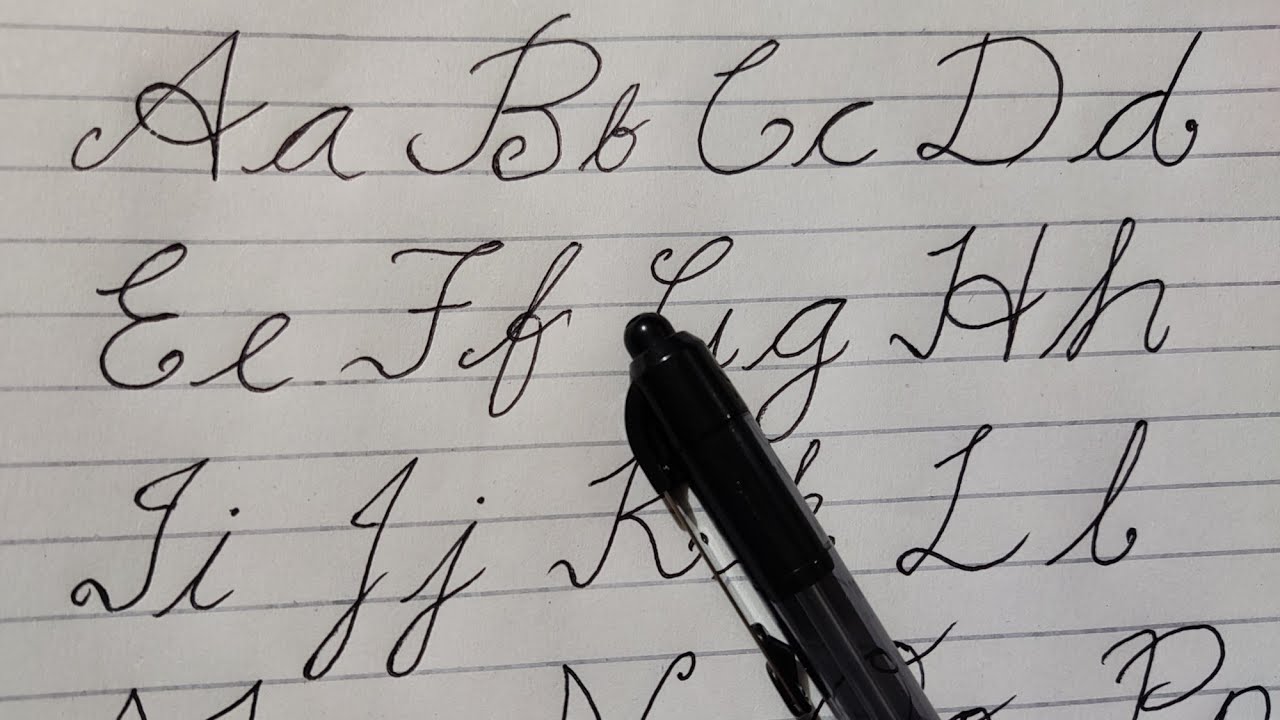 Aa Bb Cc Dd
Ee Ff Gg Hh
Ii Jj Kk Ll
M N O Pp